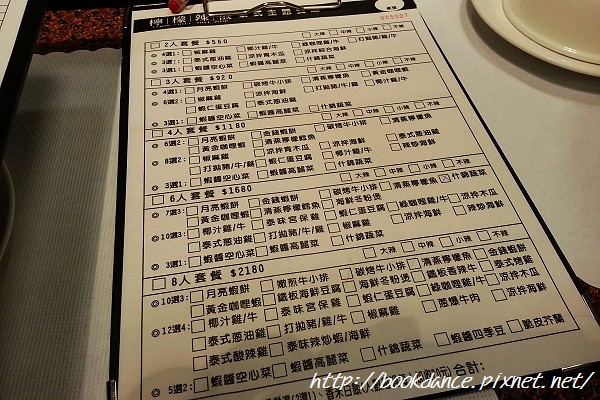 檸檬辣椒 泰式主題
005027
2人套餐 $560
□大辣 □中辣 □小辣 □不辣
◎4選1: □椒麻雞 □椰汁雞/牛 □綠咖哩雞/牛 □打拋豬/牛/雞
◎4選1: □泰式蔥油雞 □涼拌青木瓜 □涼拌綜合海鮮
◎3選1: □蝦醬空心菜 □蝦醬高麗菜 □什錦蔬菜
3人套餐 $920
□大辣 □中辣 □小辣 □不辣
◎4選1: □月亮蝦餅 □碳烤牛小排 □清蒸檸檬魚 □黃金咖哩蝦
◎6選2: □椒麻雞 □涼拌海鮮 □打拋豬/牛/雞 □椰汁雞/牛
□蝦仁蛋豆腐 □泰式蔥油雞
◎3選1: □蝦醬空心菜 □蝦醬高麗菜 □什錦蔬菜
4人套餐 $1180
□大辣 □中辣 □小辣 □不辣
◎6選2: □月亮蝦餅 □金錢蝦餅 □碳烤牛小排
□黃金咖哩蝦 □清蒸檸檬魚 □清蒸檸檬鱈魚
◎8選2: □椒麻雞 □涼拌青木瓜 □涼拌海鮮 □泰式蔥油雞
□打拋豬/牛/雞 □蝦仁蛋豆腐 □椰汁雞/牛 □辣炒海鮮
◎3選1: □蝦醬空心菜 □蝦醬高麗菜 □什錦蔬菜
6人套餐 $1680
□大辣 □中辣 □小辣 □不辣
◎7選3: □月亮蝦餅 □金錢蝦餅 □碳烤牛小排 □清蒸檸檬魚
□黃金咖哩蝦 □清蒸檸檬鱈魚 □海鮮冬粉煲
◎10選3: □椰汁雞/牛 □泰味宮保雞 □蝦仁蛋豆腐 □綠咖哩雞/牛 □涼拌木瓜
□泰式蔥油雞 □打拋豬/牛/雞 □椒麻雞 □涼拌海鮮 □辣炒海鮮
◎3選1: □蝦醬空心菜 □蝦醬高麗菜 □什錦蔬菜
8人套餐 $2180
□大辣 □中辣 □小辣 □不辣
◎10選3: □月亮蝦餅 □嫩煎牛小排 □碳烤牛小排 □清蒸檸檬魚 □金錢蝦餅
□黃金咖哩蝦 □鐵板海鮮豆腐 □海鮮冬粉煲 □鐵板香辣牛 □泰式烤雞
◎12選4: □椰汁雞/牛 □泰味宮保雞 □蝦仁蛋豆腐 □綠咖哩雞/牛 □涼拌木瓜
□泰式蔥油雞 □打拋豬/雞/牛 □椒麻雞 □蔥爆牛肉 □涼拌海鮮
□泰式酸辣雞 □泰味辣炒蝦/海鮮
◎5選2: □蝦醬空心菜 □蝦醬高麗菜 □什錦蔬菜 □蝦醬四季豆 □脆皮芥蘭
合計:
http://bookdance.pixnet.net/